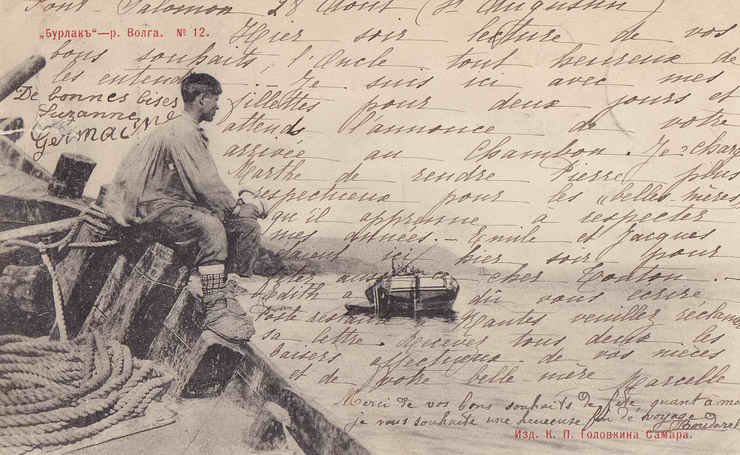 Pont-Salomon 28 Aout (St Augustin)
„Бурлакъ“—р. Волга. № 12.
Hier soir lecture de vos
bons souhaits, l'Oncle tout heureux de
les entendre - Je suis ici avec mes
De bonnes bises
Suzanne
Germaine
fillettes pour deux jours et
attends l'annonce de votre
arrivée au Chambon. Je charge
Marthe de rendre Pierre plus
respectueux pour les "belles mères"
qu'il apprenne à respecter
mes années. - Emile et Jacques
hier soir pour
cher Tonton. -
Edith a dû vous écrire
Nantes veuillez réclamer
sa lettre. Recevez tous deux les
baisers affectueux de vos nièces
et de votre belle mère Marcelle
Merci de vos bons souhaits de fête quant à moi
je vous souhaite une heureuse fin de voyage
Изд. К. П. Головкина Самара.